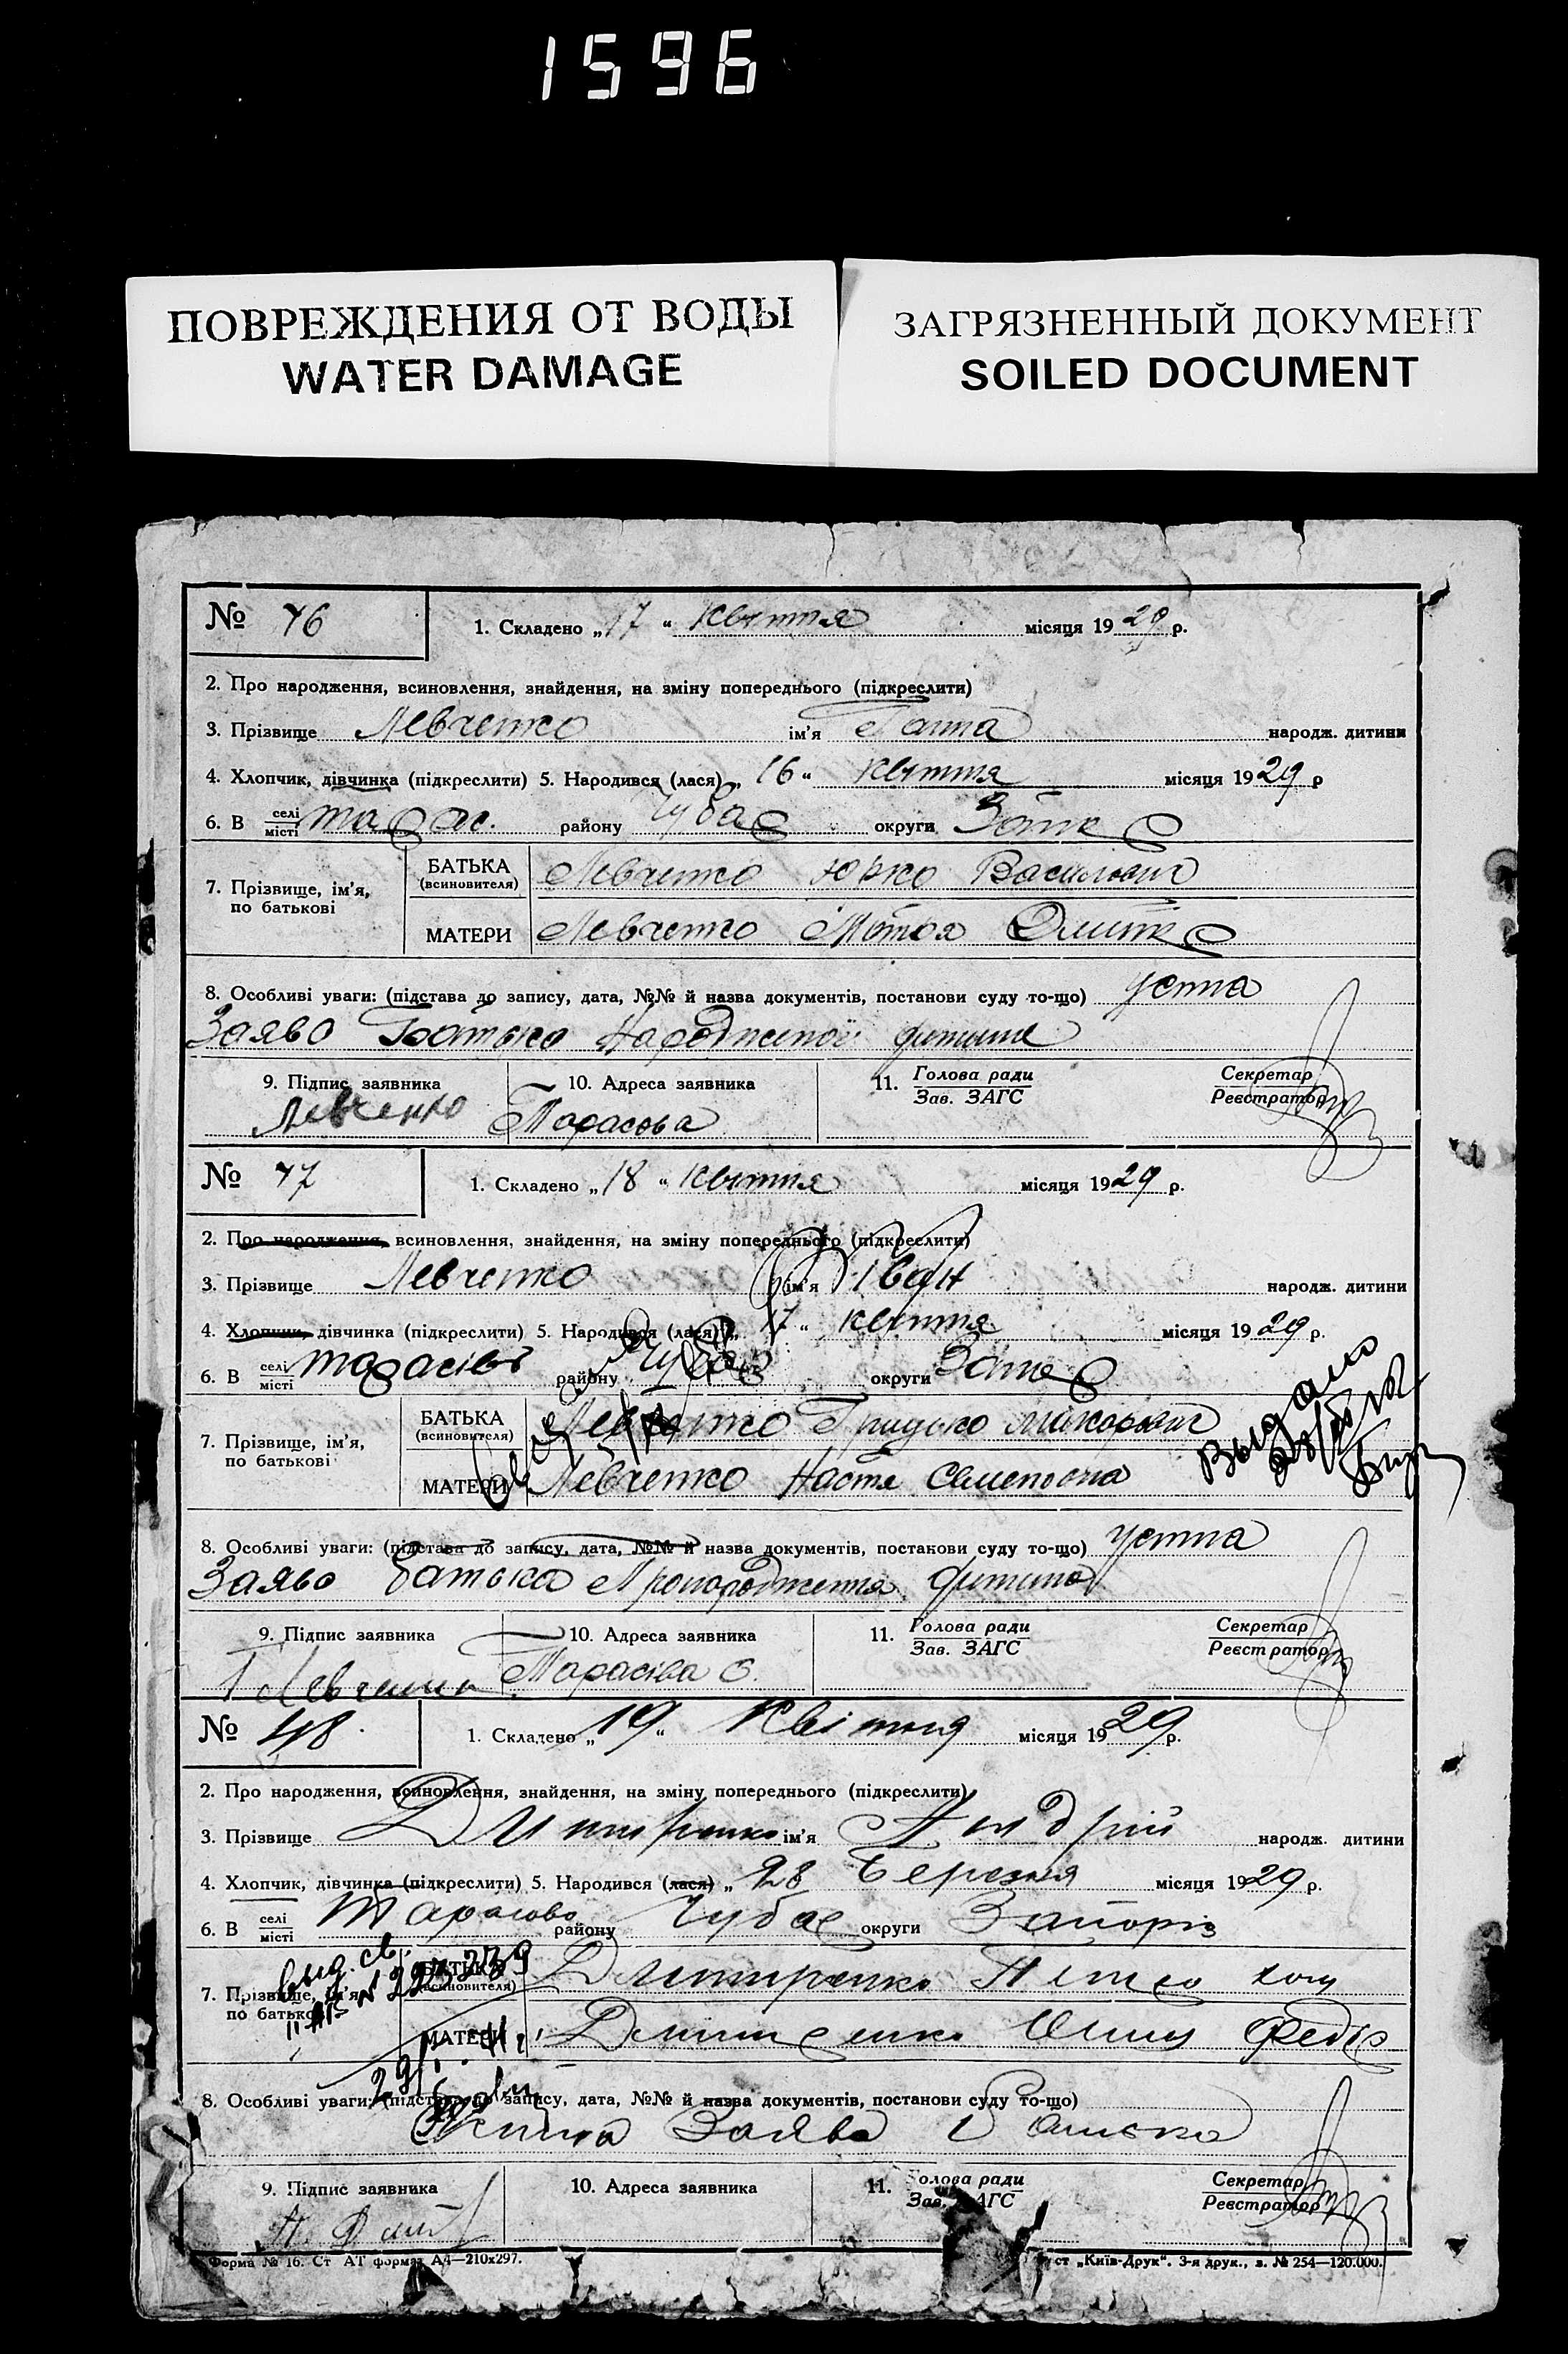 1596
ПОВРЕЖДЕНИЯ ОТ ВОДЫ
WATER DAMAGE
ЗАГРЯЗНЕННЫЙ ДОКУМЕНТ
SOILED DOCUMENT
№ 46 1. Складено „17“ квітня місяця 1929 р.
2. Про народження, всиновлення, знайдення, на зміну попереднього (підкреслити)
3. Прізвище Левченко ім'я Ганна народж. дитини
4. Хлопчик, дівчинка (підкреслити) 5. Народився (лася) „16“ квітня місяця 1929 р
6. В селі місті Тарас. району Чубар округи Запор
7. Прізвище, ім'я, по батькові
БАТЬКА (всиновителя) Левченко Юрко Васильович
МАТЕРИ Левченко Мотря
8. Особливі уваги: (підстава до запису, дата, №№ й назва документів, постанови суду то-що) Устна
Заява Батька народженої дитини
9. Підпис заявника 10. Адреса заявника 11. Голова ради Зав. ЗАГС Секретар Реєстратор
Левченко Тарасова
№ 47 1. Складено „18“ квітня місяця 1929 р.
2. Про народження, всиновлення, знайдення, на зміну попереднього (підкреслити)
3. Прізвище Левченко ім'я Іван народж. дитини
4. Хлопчик, дівчинка (підкреслити) 5. Народився (лася) „17“ квітня місяця 1929 р.
6. В селі місті Тарасівс району Чубар округи Запор
7. Прізвище, ім'я, по батькові
БАТЬКА (всиновителя) Левченко Грицько
МАТЕРИ Левченко Настя Семеновна
Выдано
8. Особливі уваги: (підстава до запису, дата, №№ й назва документів, постанови суду то-що) Устна
Заява батька
9. Підпис заявника 10. Адреса заявника 11. Голова ради Зав. ЗАГС Секретар Реєстратор
Г Левченко Тарасівка с.
№ 48 1. Складено „19“ Квітня місяця 1929 р.
2. Про народження, всиновлення, знайдення, на зміну попереднього (підкреслити)
3. Прізвище Дмитренко ім'я Андрій народж. дитини
4. Хлопчик, дівчинка (підкреслити) 5. Народився (лася) „28 Березня місяця 1929 р.
6. В селі місті Тарасово району Чубар округи Запоріз
7. Прізвище, ім'я, по батькові
БАТЬКА (всиновителя) Дмитренко
МАТЕРИ Дмитренко Федор
8. Особливі уваги: (підстава до запису, дата, №№ й назва документів, постанови суду то-що)
Устна Заява Батька
9. Підпис заявника 10. Адреса заявника 11. Голова ради Зав. ЗАГС Секретар Реєстратор
Форма № 16. Ст АТ формат А4—210х297.
ст „Київ-Друк“. 3-я друк., з. № 254—120.000.